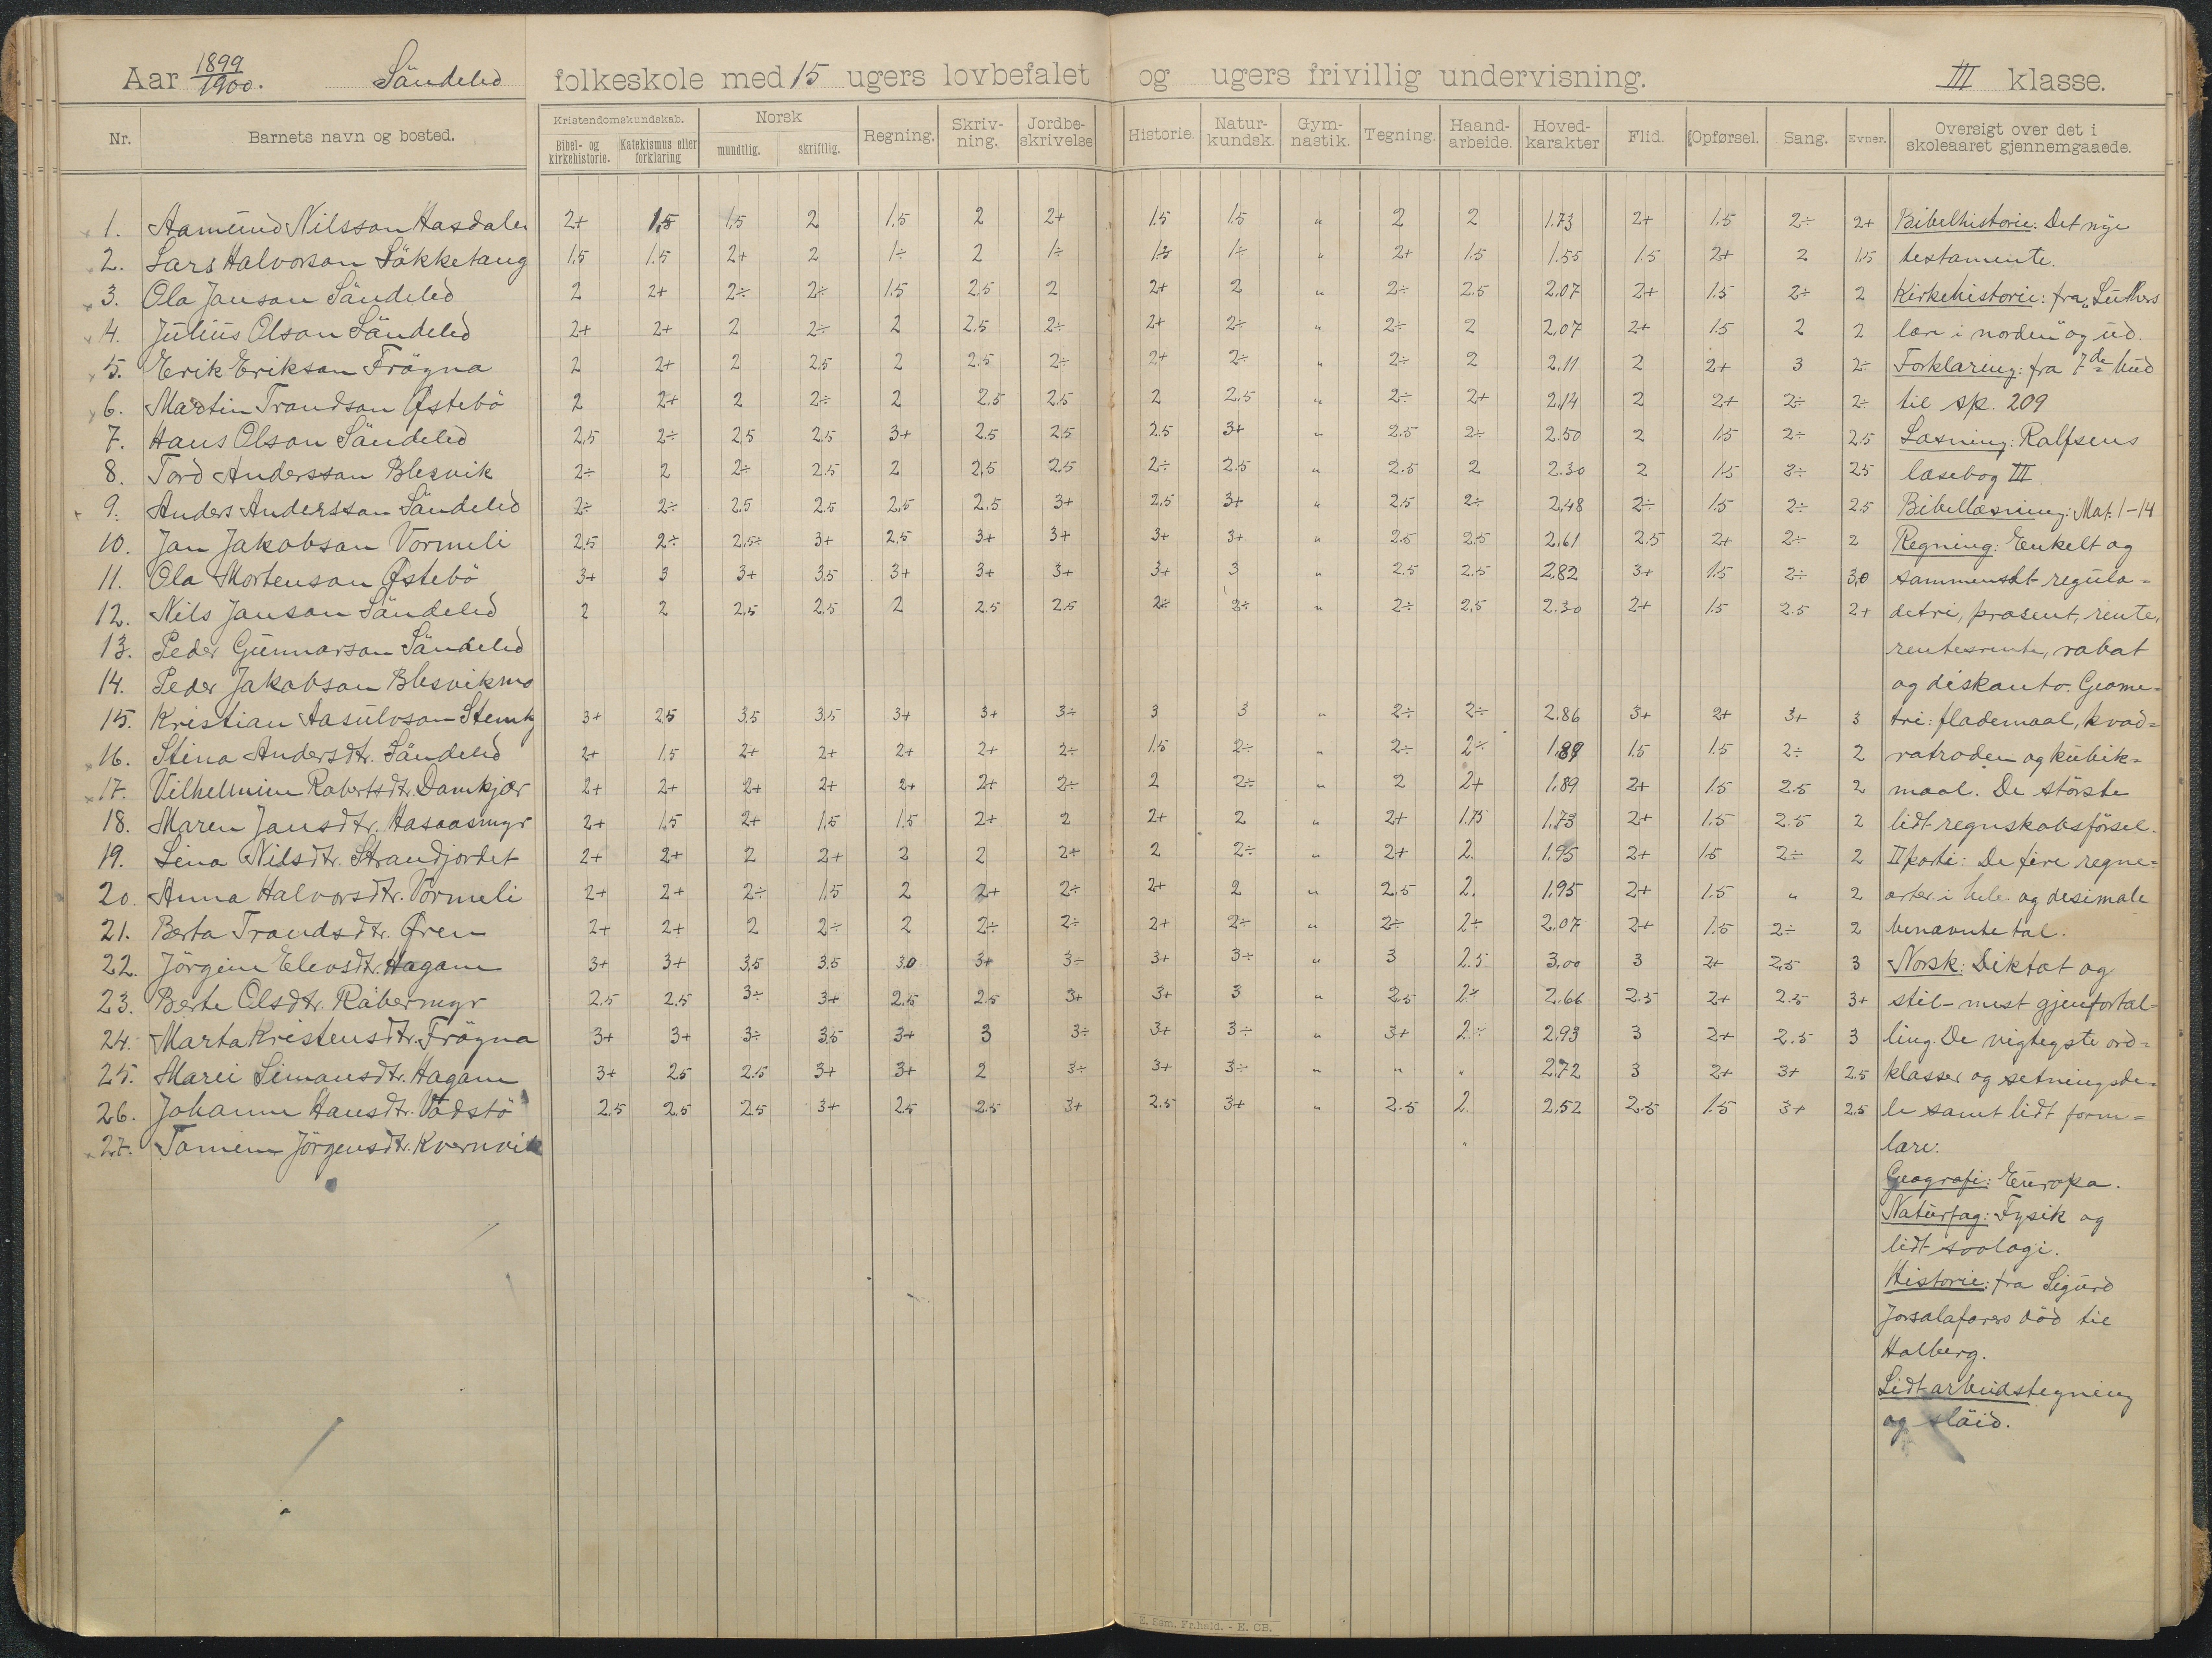 Aar 1899/1900. Söndeled folkeskole med 15 ugers lovbefalet og ugers frivillig undervisning. III klasse.
Nr. Barnets navn og bosted. Kristendomskundskab. Bibel- og kirkehistorie. Katekismus eller forklaring Norsk mundtlig. skriftlig. Regning. Skriv-ning. Jordbe-skrivelse Historie. Natur-kundsk. Gym-nastik. Tegning. Haand-arbeide. Hoved-karakter Flid. Opførsel. Sang. Evner. Oversigt over det i skoleaaret gjennemgaaede.
1. Aamund Nilsson Hasdalen 2+ 1,5 1,5 2 1,5 2 2+ 1.5 1.5 " 2 2 1.73 2+ 1.5 2÷ 2+ Bibelhistorie: Det nye
2. Lars Halvorson Lökketang 1,5 1.5 2+ 2 1÷ 2 1÷ 1.5 1÷ " 2+ 1.5 1.55 1.5 2+ 2 1.5 testamente.
3. Ola Janson Söndeled 2 2+ 2÷ 2÷ 1.5 2.5 2 2+ 2 " 2÷ 2.5 2.07 2+ 1.5 2÷ 2 Kirkehistorie: fra „Luthers
4. Julius Olson Söndeled 2+ 2+ 2 2÷ 2 2.5 2÷ 2+ 2÷ " 2÷ 2 2,07 2+ 1.5 2 2 lære i norden" og ud.
5. Erik Erikson Frögna 2 2+ 2 2.5 2 2.5 2÷ 2+ 2÷ " 2÷ 2 2.11 2 2+ 3 2÷ Forklaring: fra 7de bud
6. Martin Trondson Østebö 2 2+ 2 2÷ 2 2.5 2.5 2 2,5 " 2÷ 2+ 2,14 2 2+ 2÷ 2÷ til sp. 209
7. Hans Olson Söndeled 2,5 2÷ 2,5 2.5 3+ 2.5 2.5 2.5 3+ " 2.5 2÷ 2.50 2 1.5 2÷ 2.5 Læsning: Rolfsens
8. Tord Andersson Blesvik 2÷ 2 2÷ 2.5 2 2,5 2.5 2÷ 2.5 " 2.5 2 2.30 2 1.5 2÷ 2.5 læsebog III.
9. Anders Andersson Söndeled 2÷ 2÷ 2.5 2.5 2,5 2.5 3+ 2,5 3+ " 2.5 2÷ 2,48 2÷ 1.5 2÷ 2.5 Bibellæsning: Mat. 1-14
10. Jon Jakobson Vormeli 2.5 2÷ 2,5÷ 3+ 2,5 3+ 3+ 3+ 3+ " 2.5 2.5 2.61 2.5 2+ 2÷ 2 Regning: Enkelt og
11. Ola Mortenson Østebö 3+ 3 3+ 3.5 3+ 3+ 3+ 3+ 3 " 2.5 2.5 2.82 3+ 1.5 2÷ 3,0 sammensat regula=
12. Nils Janson Söndeled 2 2 2,5 2,5 2 2.5 2.5 2÷ 2÷ " 2÷ 2,5 2.30 2+ 1.5 2.5 2+ detri, prosent, rente,
13. Peder Gunnarson Söndeled rentesrente, rabat
14. Peder Jakobson Blesvikmo og diskonto. Geome=
15. Kristian Aasulvson 3+ 2.5 3.5 3,5 3+ 3+ 3÷ 3 3 " 2÷ 2÷ 2.86 3+ 2+ 3+ 3 tri: flademaal, kvad=
16. Stina Andersdtr. Söndeled 2+ 1.5 2+ 2+ 2+ 2+ 2÷ 1.5 2÷ " 2÷ 2÷ 1,89 1.5 1.5 2÷ 2 ratroden og kubik=
17. Vilhelmine Robertsdtr. Damkjær 2+ 2+ 2+ 2+ 2+ 2+ 2÷ 2 2÷ " 2 2+ 1.89 2+ 1.5 2.5 2 maal. De störste
18. Maren Jansdtr. Hasaasmyr 2+ 1,5 2+ 1,5 1.5 2+ 2 2+ 2 " 2+ 1.75 1.73 2+ 1.5 2.5 2 lidt regnskabsförsel.
19. Lina Nilsdtr. Strandjordet 2+ 2+ 2 2+ 2 2 2+ 2 2÷ " 2+ 2. 1.95 2+ 1.5 2÷ 2 II parti: De fire regne=
20. Anna Halvorsdtr. Vormeli 2+ 2+ 2÷ 1.5 2 2+ 2÷ 2+ 2 " 2.5 2. 1.95 2+ 1.5 " 2 arter i hele og desimale
21. Berta Trondsdtr. Øren 2+ 2+ 2 2÷ 2 2÷ 2÷ 2+ 2÷ " 2÷ 2+ 2.07 2+ 1.5 2÷ 2 benævnte tal.
22. Jörgine Elevsdtr. Hagane 3+ 3+ 3,5 3.5 3.0 3+ 3÷ 3+ 3÷ " 3 2.5 3,00 3 2+ 2,5 3 Norsk: Diktat og
23. Berte Olsdtr. Råbermyr 2.5 2,5 3÷ 3+ 2.5 2.5 3+ 3+ 3 " 2.5 2+ 2.66 2.5 2+ 2.5 3+ stil - mest gjenfortæl=
24. Marta Kristensdtr. Frögna 3+ 3+ 3÷ 3.5 3+ 3 3÷ 3+ 3÷ " 3+ 2÷ 2,93 3 2+ 2.5 3 ling. De vigtegste ord=
25. Marei Simonsdtr. Hagane 3+ 2.5 2.5 3+ 3+ 2 3÷ 3+ 3÷ " " " 2.72 3 2+ 3+ 2.5 klasser og setningsde=
26. Johanne Hansdtr. Vådstö 2.5 2.5 2.5 3+ 2.5 2.5 3+ 2.5 3+ " 2.5 2. 2,52 2.5 1.5 3+ 2.5 le samt lidt form=
27. Tomine Jörgensdtr. Kvernvik " lære.
Geografi: Europa.
Naturfag: Fysik og
lidt soologi.
Historie: fra Sigurd
Jorsalafarers död til
Holberg.
Lidt arbeidstegning
og slöid.
E. Sem. Fr.hald. - E. CB.